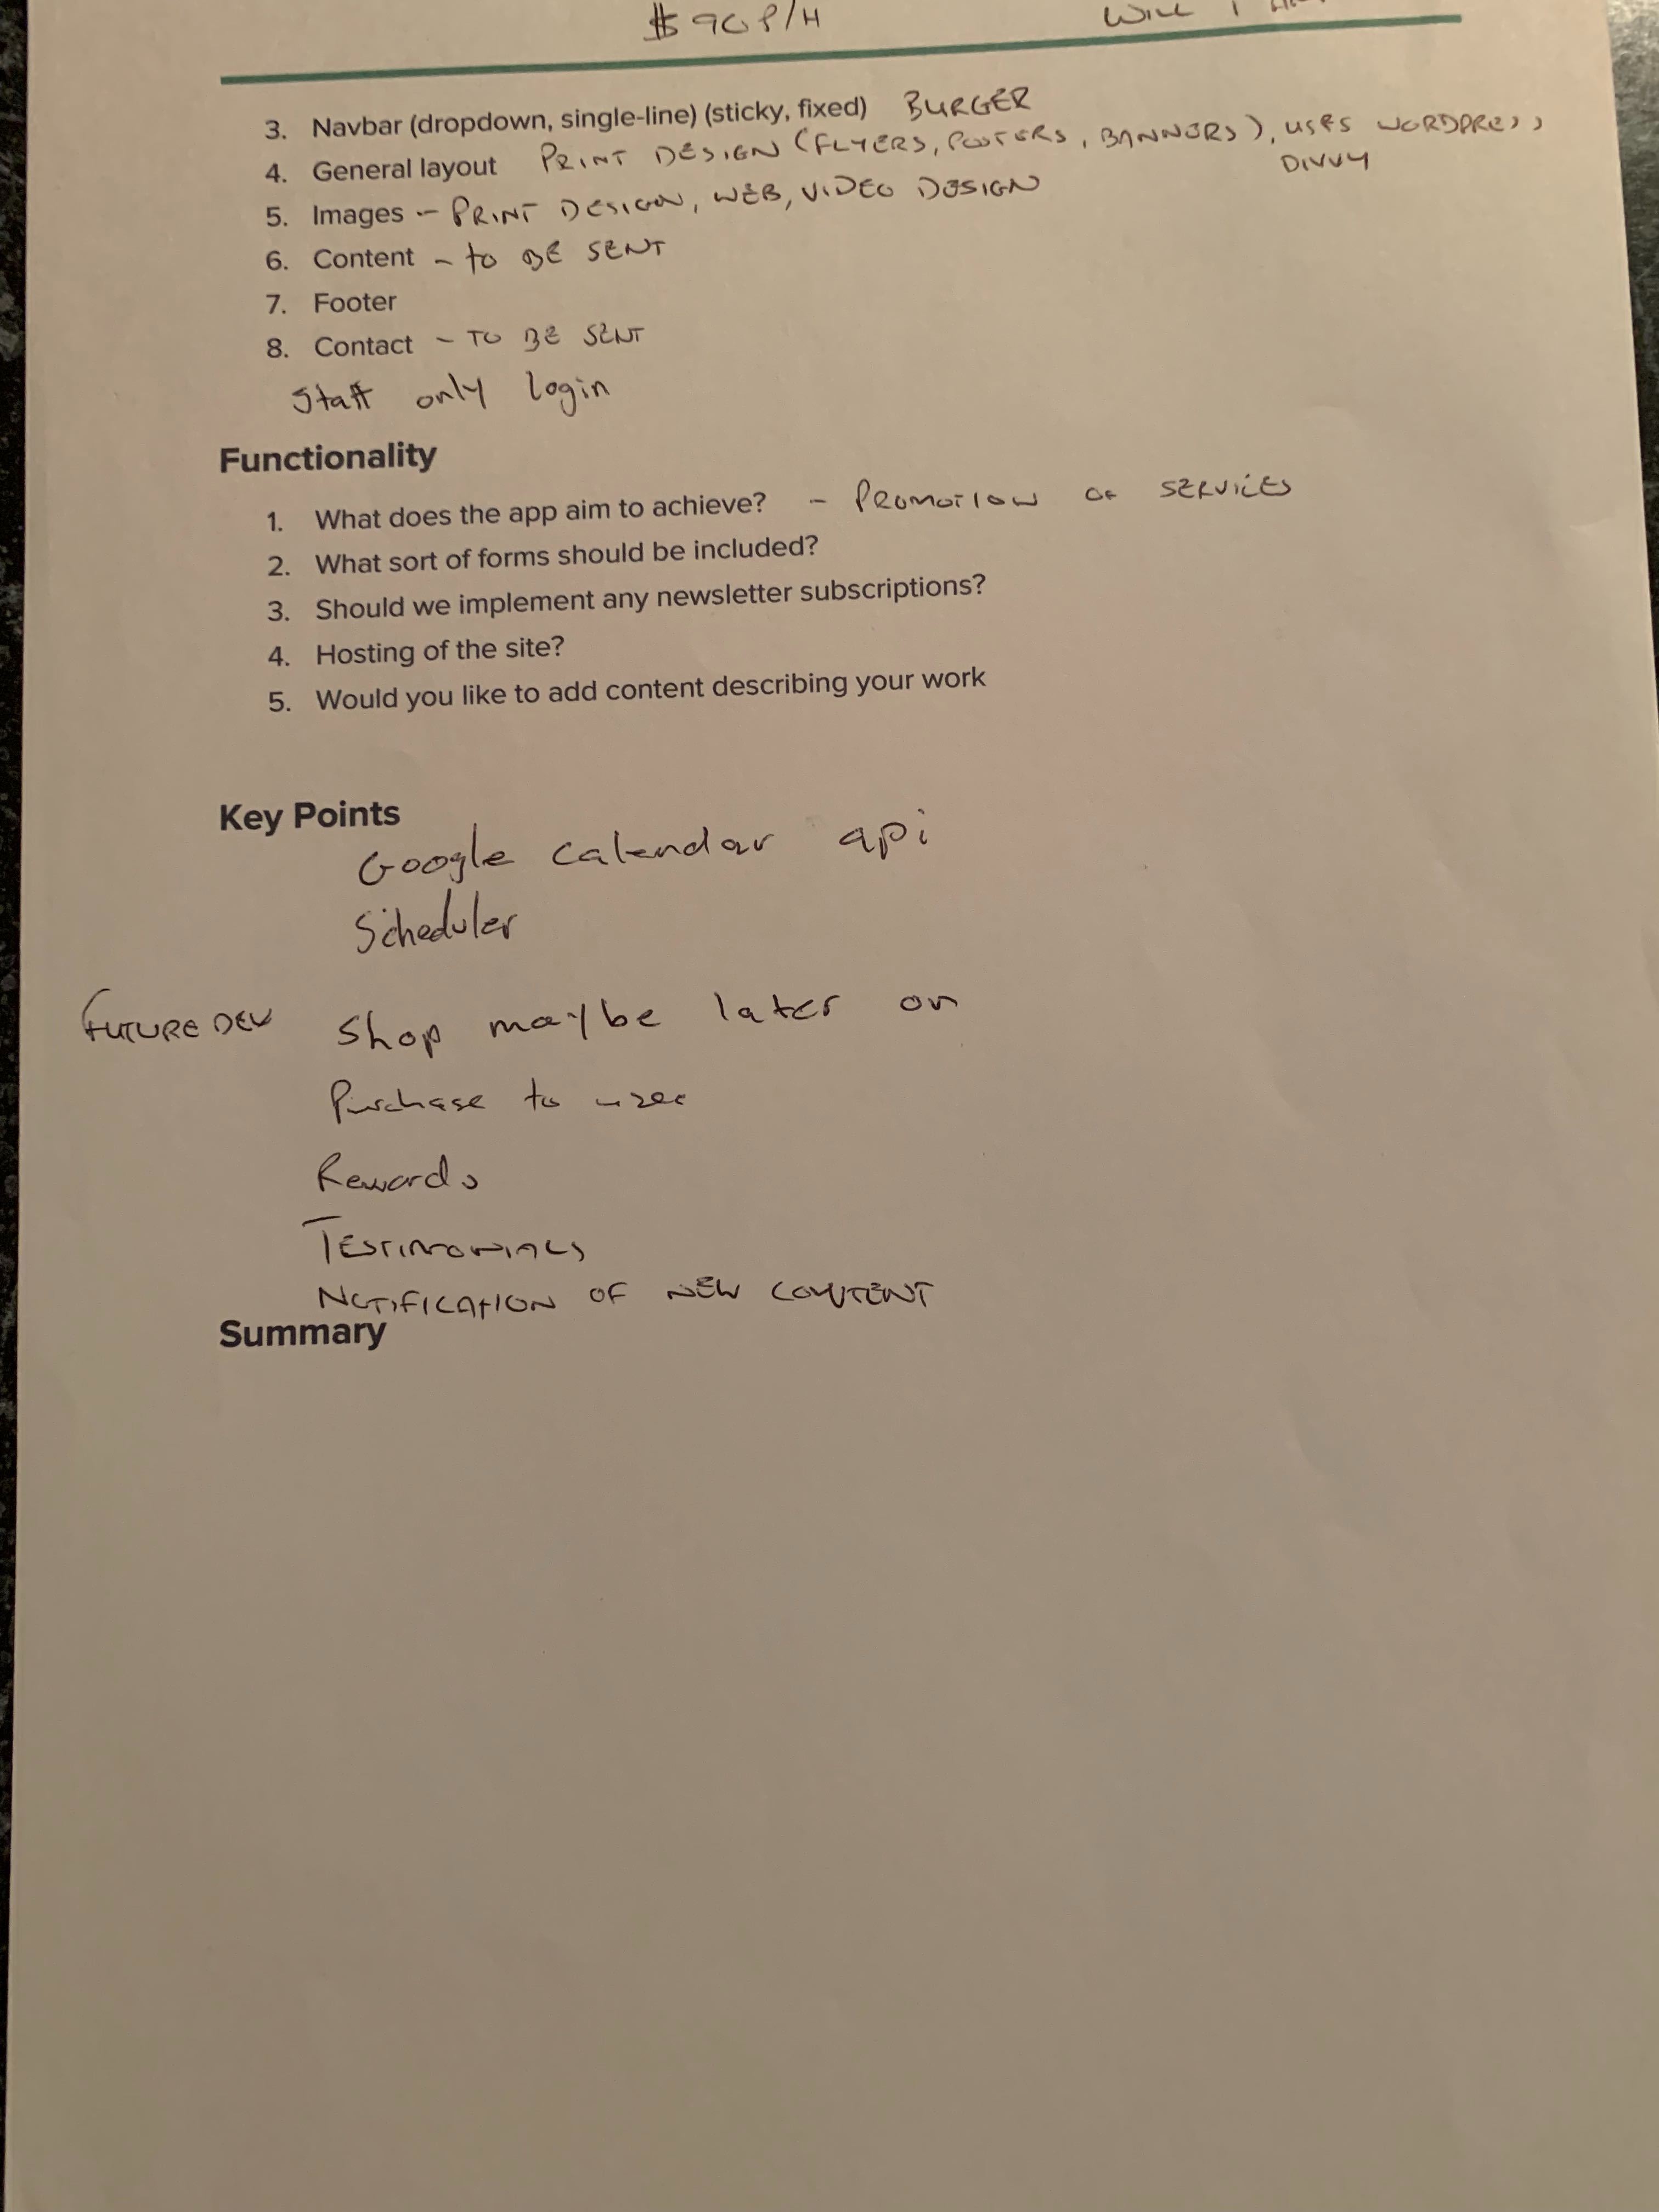 $90 P/H WILL I
3. Navbar (dropdown, single-line) (sticky, fixed) BURGER
4. General layout PRINT DESIGN (FLYERS, POSTERS, BANNERS), USES WORDPRESS
DIVVY
5. Images - PRINT DESIGN, WEB, VIDEO DESIGN
6. Content - to BE SENT
7. Footer
8. Contact - TO BE SENT
Staff only login
Functionality
1. What does the app aim to achieve? - PROMOTION OF SERVICES
2. What sort of forms should be included?
3. Should we implement any newsletter subscriptions?
4. Hosting of the site?
5. Would you like to add content describing your work
Key Points
Google calendar api
Scheduler
FUTURE DEV Shop maybe later on
Purchase to
Rewards
TESTIMONIALS
NOTIFICATION OF NEW CONTENT
Summary